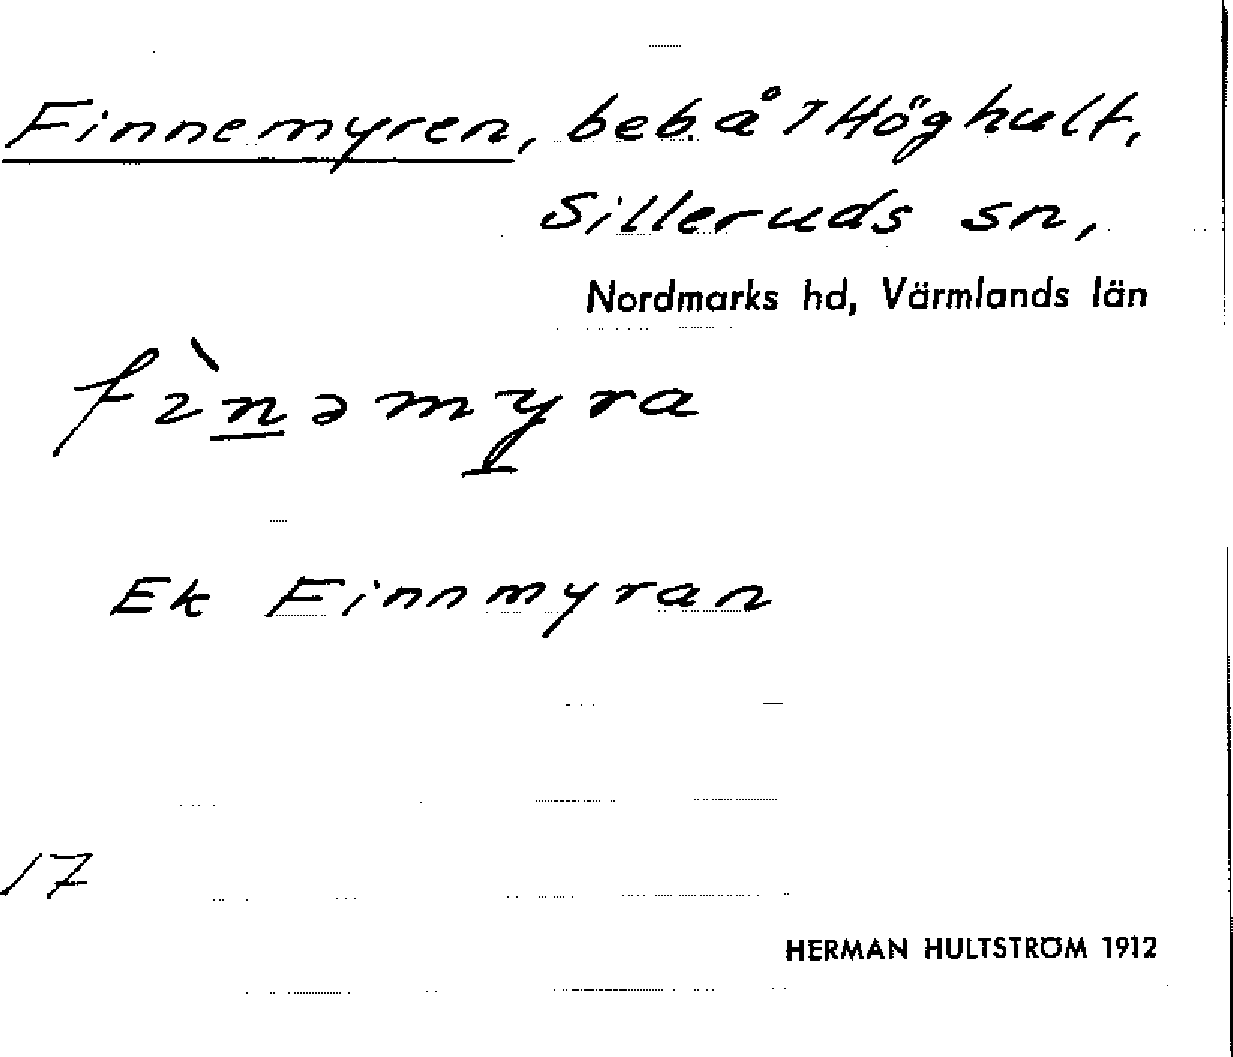 Finnemyren, beb. å 7 Höghult,
Silleruds sn,
Nordmarks hd, Värmlands län
fìnəmyra
Ek Finnmyran
17
HERMAN HULTSTRÖM 1912